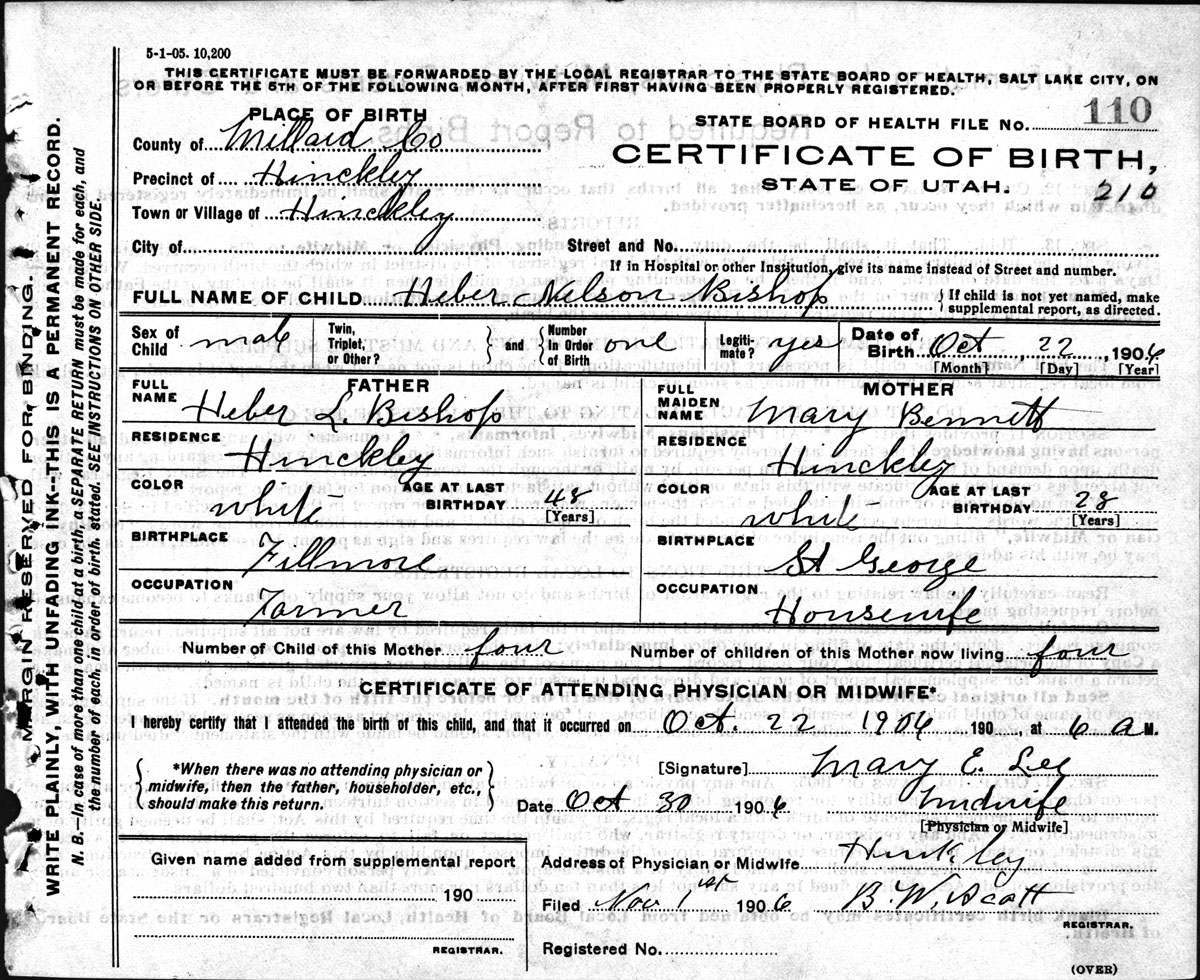 5-1-05. 10,200
THIS CERTIFICATE MUST BE FORWARDED BY THE LOCAL REGISTRAR TO THE STATE BOARD OF HEALTH, SALT LAKE CITY, ON
OR BEFORE THE 5TH OF THE FOLLOWING MONTH, AFTER FIRST HAVING BEEN PROPERLY REGISTERED.
PLACE OF BIRTH
County of Millard Co
Precinct of Hinckley
Town or Village of Hinckley
City of
STATE BOARD OF HEALTH FILE No. 110
CERTIFICATE OF BIRTH,
STATE OF UTAH.
210
Street and No.
If in Hospital or other Institution, give its name instead of Street and number.
FULL NAME OF CHILD Heber Nelson Bishop
If child is not yet named, make
supplemental report, as directed.
Sex of Child male
Twin, Triplet, or Other?
and Number In Order of Birth one
Legiti-mate? yes
Date of Birth Oct 22, 1906
[Month] [Day] [Year]
FATHER
FULL NAME Heber L. Bishop
RESIDENCE Hinckley
COLOR white
AGE AT LAST BIRTHDAY 48
[Years]
BIRTHPLACE Fillmore
OCCUPATION Farmer
MOTHER
FULL MAIDEN NAME Mary Bennett
RESIDENCE Hinckley
COLOR white
AGE AT LAST BIRTHDAY 28
[Years]
BIRTHPLACE St George
OCCUPATION Housewife
Number of Child of this Mother four
Number of children of this Mother now living four
CERTIFICATE OF ATTENDING PHYSICIAN OR MIDWIFE*
I hereby certify that I attended the birth of this child, and that it occurred on Oct. 22 1906 190 , at 6 a M.
*When there was no attending physician or
midwife, then the father, householder, etc.,
should make this return.
[Signature] Mary E. Lee
Date Oct 30 1906 Midwife
[Physician or Midwife]
Given name added from supplemental report
190
REGISTRAR.
Address of Physician or Midwife Hinkley
Filed Nov 1st 1906 B. W. Scott
REGISTRAR.
Registered No.
(OVER)
MARGIN RESERVED FOR BINDING.
WRITE PLAINLY, WITH UNFADING INK--THIS IS A PERMANENT RECORD.
N. B.--In case of more than one child at a birth, a SEPARATE RETURN must be made for each, and
the number of each, in order of birth, stated. SEE INSTRUCTIONS ON OTHER SIDE.